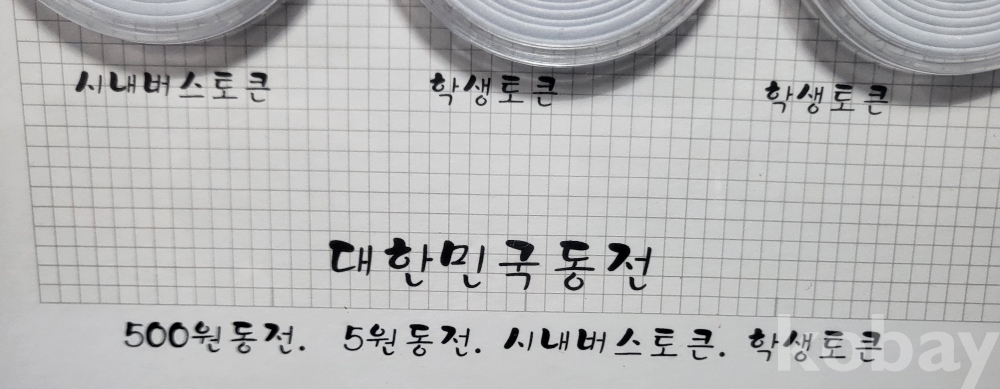 시내버스토큰 학생토큰 학생토큰
대한민국동전
500원동전. 5원동전. 시내버스토큰. 학생토큰
kobay